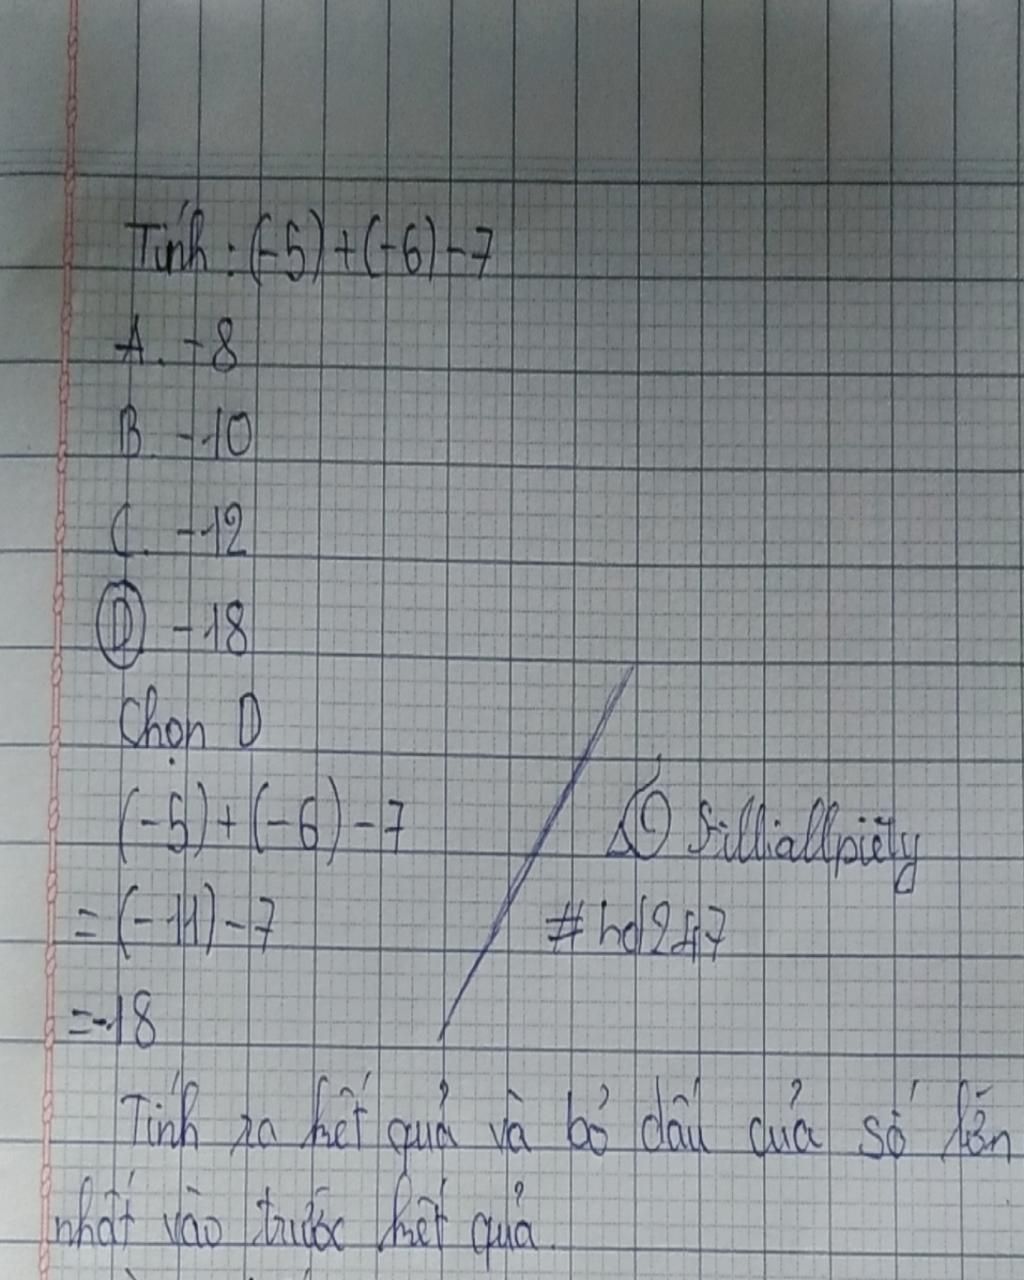 Tính : (-5) + (-6) - 7
A. -8
B. -10
C. -12
D -18
Chọn D
(-5) + (-6) - 7
= (-11) - 7
= -18
Filliallpiety
#hd247
Tính ra kết quả và bỏ dấu của số lớn
nhất vào trước kết quả.